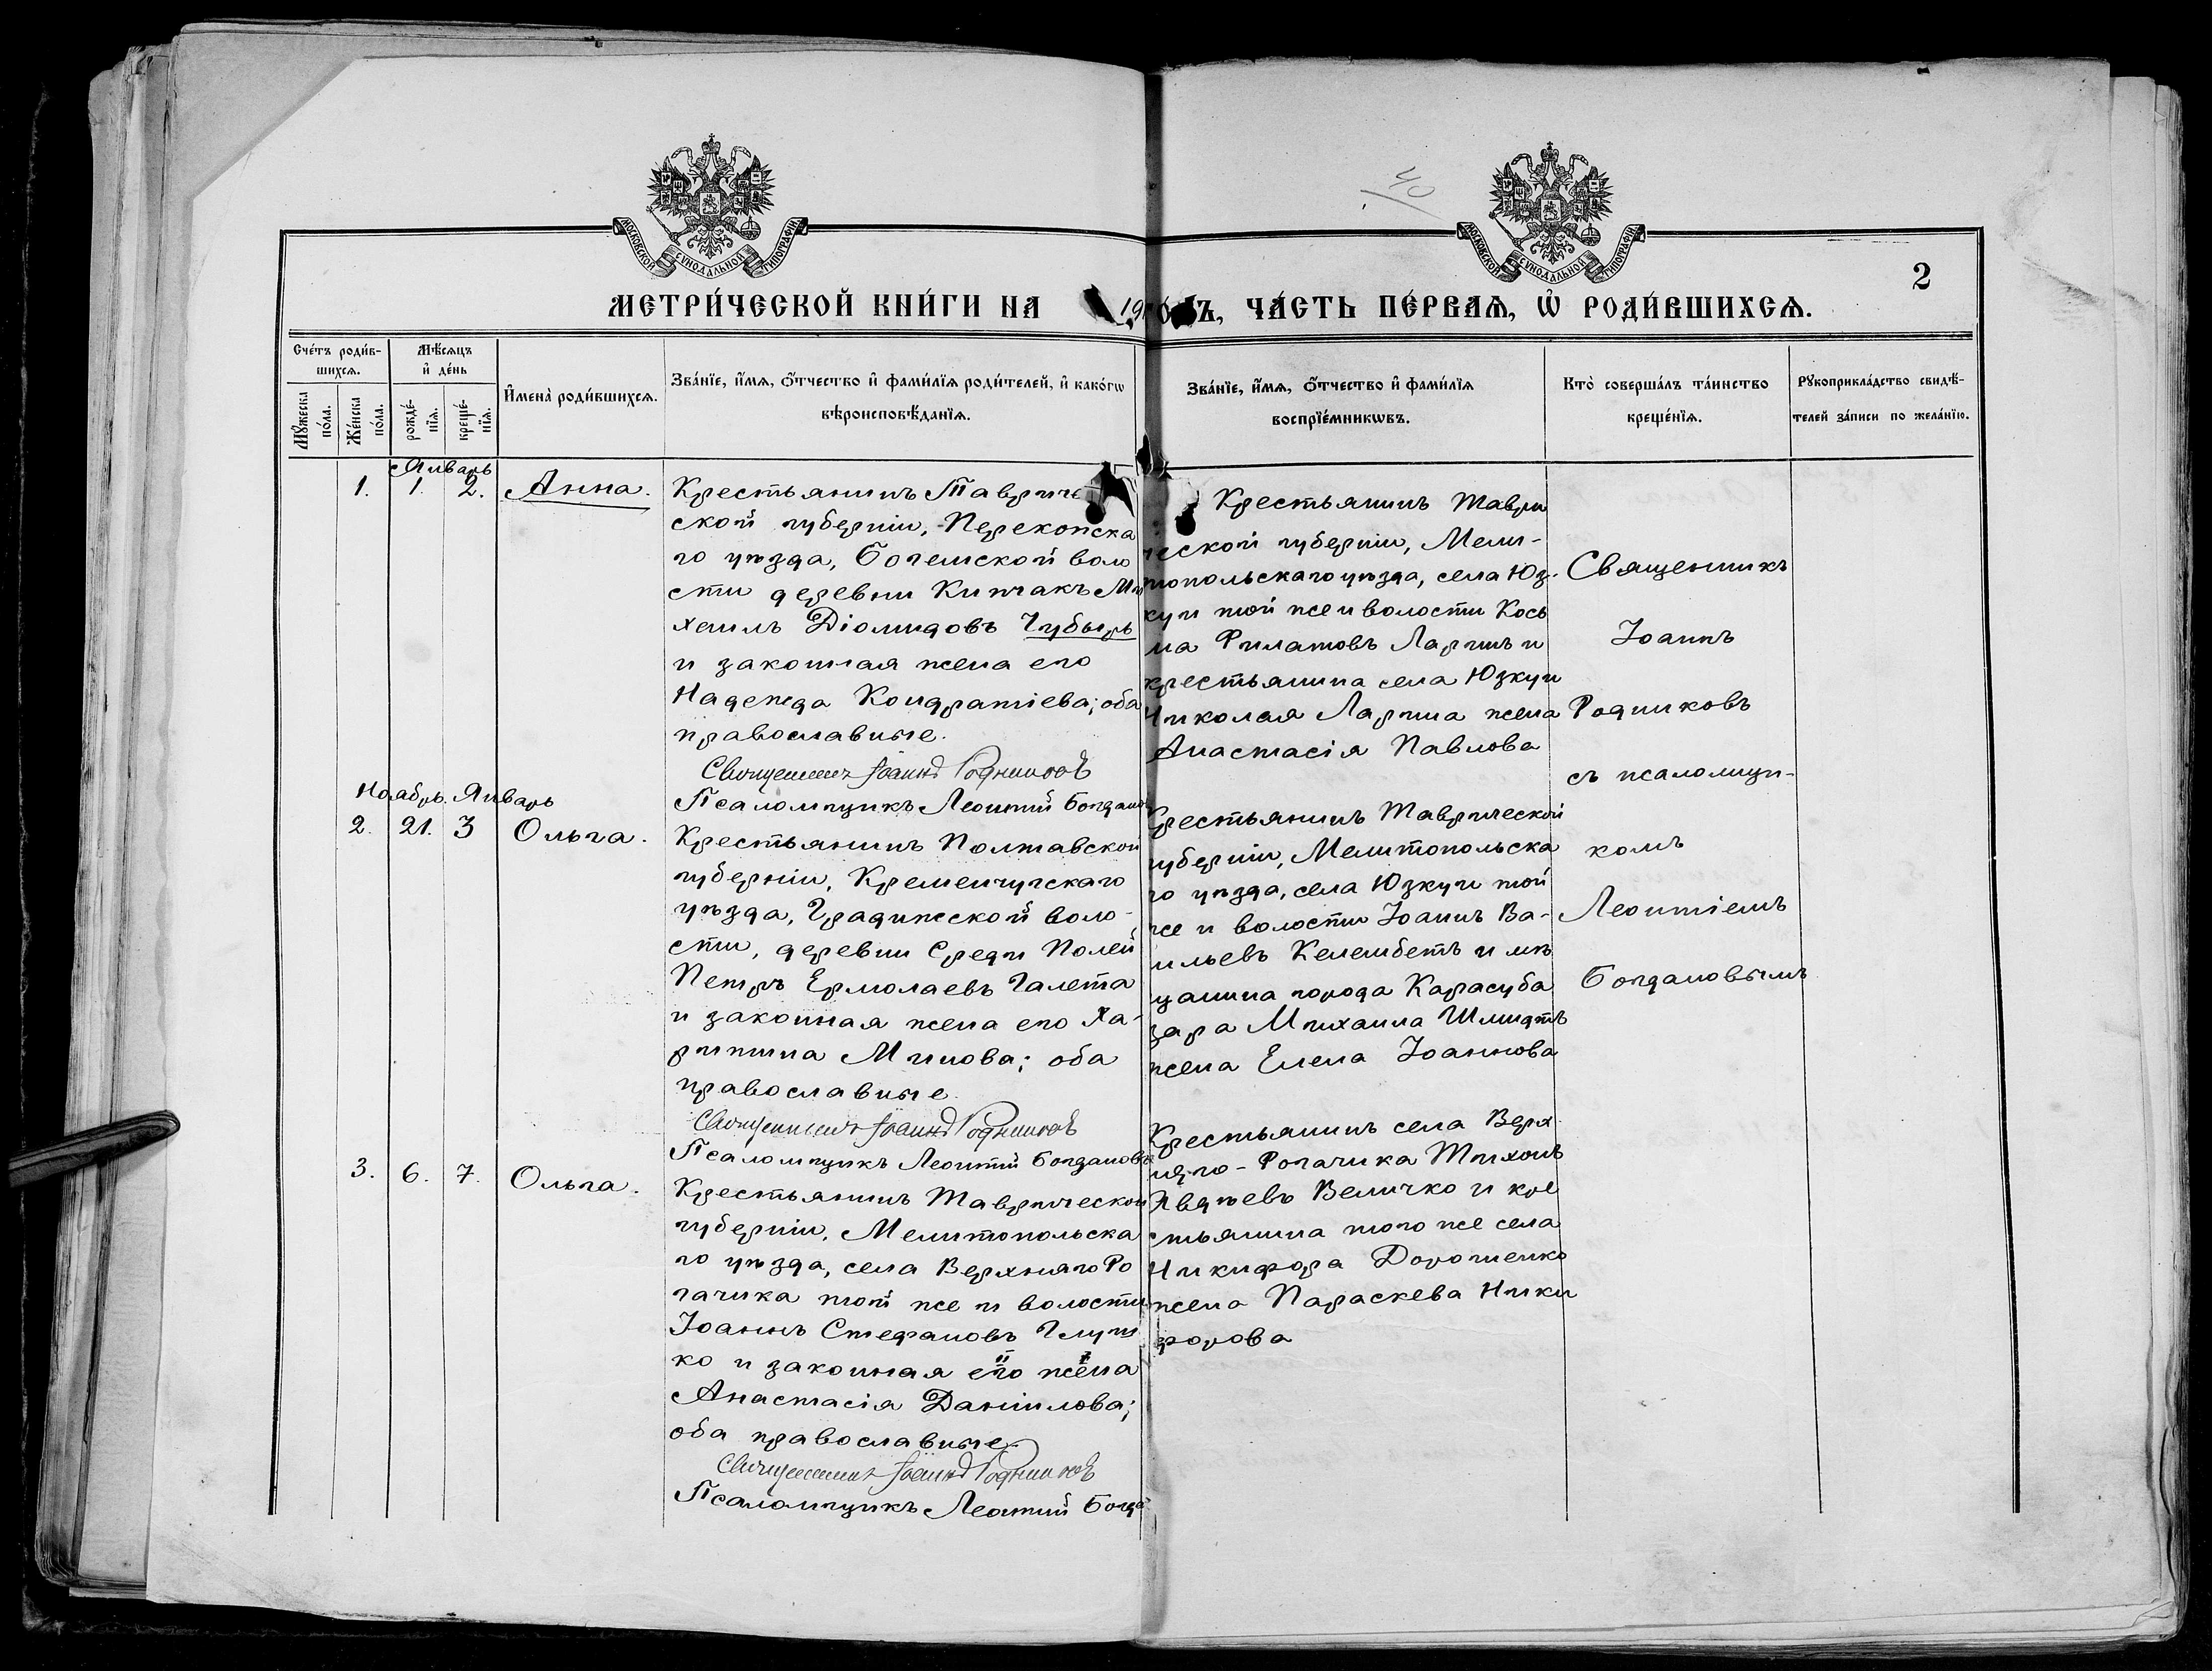 МОСКОВСКОЙ СѴНОДАЛЬНОЙ ТИПОГРАФІИ
МОСКОВСКОЙ СѴНОДАЛЬНОЙ ТИПОГРАФІИ
40
2
МЕТРИ́ЧЕСКОЙ КНИ́ГИ НА 19 ГО́ДЪ, ЧА́СТЬ ПЕ́РВАѦ, Ѡ҆ РОДИ́ВШИХСѦ.
Сче́тъ роди́в-
шихсѧ.
Мꙋ́жеска
по́ла.
Же́нска
по́ла.
Мѣ́сѧцъ
и҆ де́нь
рожде́-
нїѧ.
креще́-
нїѧ.
И҆мена̀ роди́вшихсѧ.
Зва́нїе, и҆́мѧ, ѻ҆́тчество и҆ фами́лїѧ роди́телей, и҆ како́гѡ
вѣроисповѣ́данїѧ.
Зва́нїе, и҆́мѧ, ѻ҆́тчество и҆ фами́лїѧ
воспрїе́мникѡвъ.
Кто̀ соверша́лъ та́инство
креще́нїѧ.
Рꙋкоприкла́дство свидѣ́-
телей за́писи по жела́нїю.
Январь
1. 1. 2. Анна.
Крестьянинъ Тавриче
ской губерніи, Перекопска
го уѣзда, Богемской воло
сти деревни Кипчакъ Ми
хаилъ Діомидовъ Чубырь
и законная жена его
Надежда Кондратіева; оба
православные.
Священникъ Іоаннъ Родниковъ
Псаломщикъ Леонтій Богданов
Крестьянинъ Таври
ческой губерніи, Мели-
топольскаго уѣзда, села Юз-
куи той же и волости Кось
ма Филатовъ Ларинъ и
крестьянина села Юзкуи
Николая Ларина жена
Анастасія Павлова
Священникъ
Іоаннъ
Родниковъ
съ псаломщи-
комъ
Леонтіемъ
Богдановымъ
Ноябрь. Январь
2. 21. 3 Ольга.
Крестьянинъ Полтавской
губерніи, Кременчугскаго
уѣзда, Градижской воло-
сти, деревни Среди Полей
Петръ Ермолаевъ Галета
и законная жена его Ха-
ритина Минова; оба
православные.
Священникъ Іоаннъ Родниковъ
Псаломщикъ Леонтій Богдановъ
Крестьянинъ Таврической
губерніи, Мелитопольска
го уѣзда, села Юзкуи той
же и волости Іоаннъ Ва-
сильевъ Келембетъ и мѣ
щанина города Карасуба
зара Михаила Шмидтъ
жена Елена Іоаннова
3. 6. 7. Ольга.
Крестьянинъ Таврической
губерніи, Мелитопольска
го уѣзда, села Верхняго Ро
гачика той же и волости
Іоаннъ Стефановъ Глуш
ко и законная его жена
Анастасія Даніилова;
оба православные.
Священникъ Іоаннъ Родниковъ
Псаломщикъ Леонтій Богда
Крестьянинъ села Верх
няго-Рогачика Тихонъ
Авдѣевъ Величко и кре
стьянина того же села
Никифора Дорошенко
жена Параскева Ники
форова